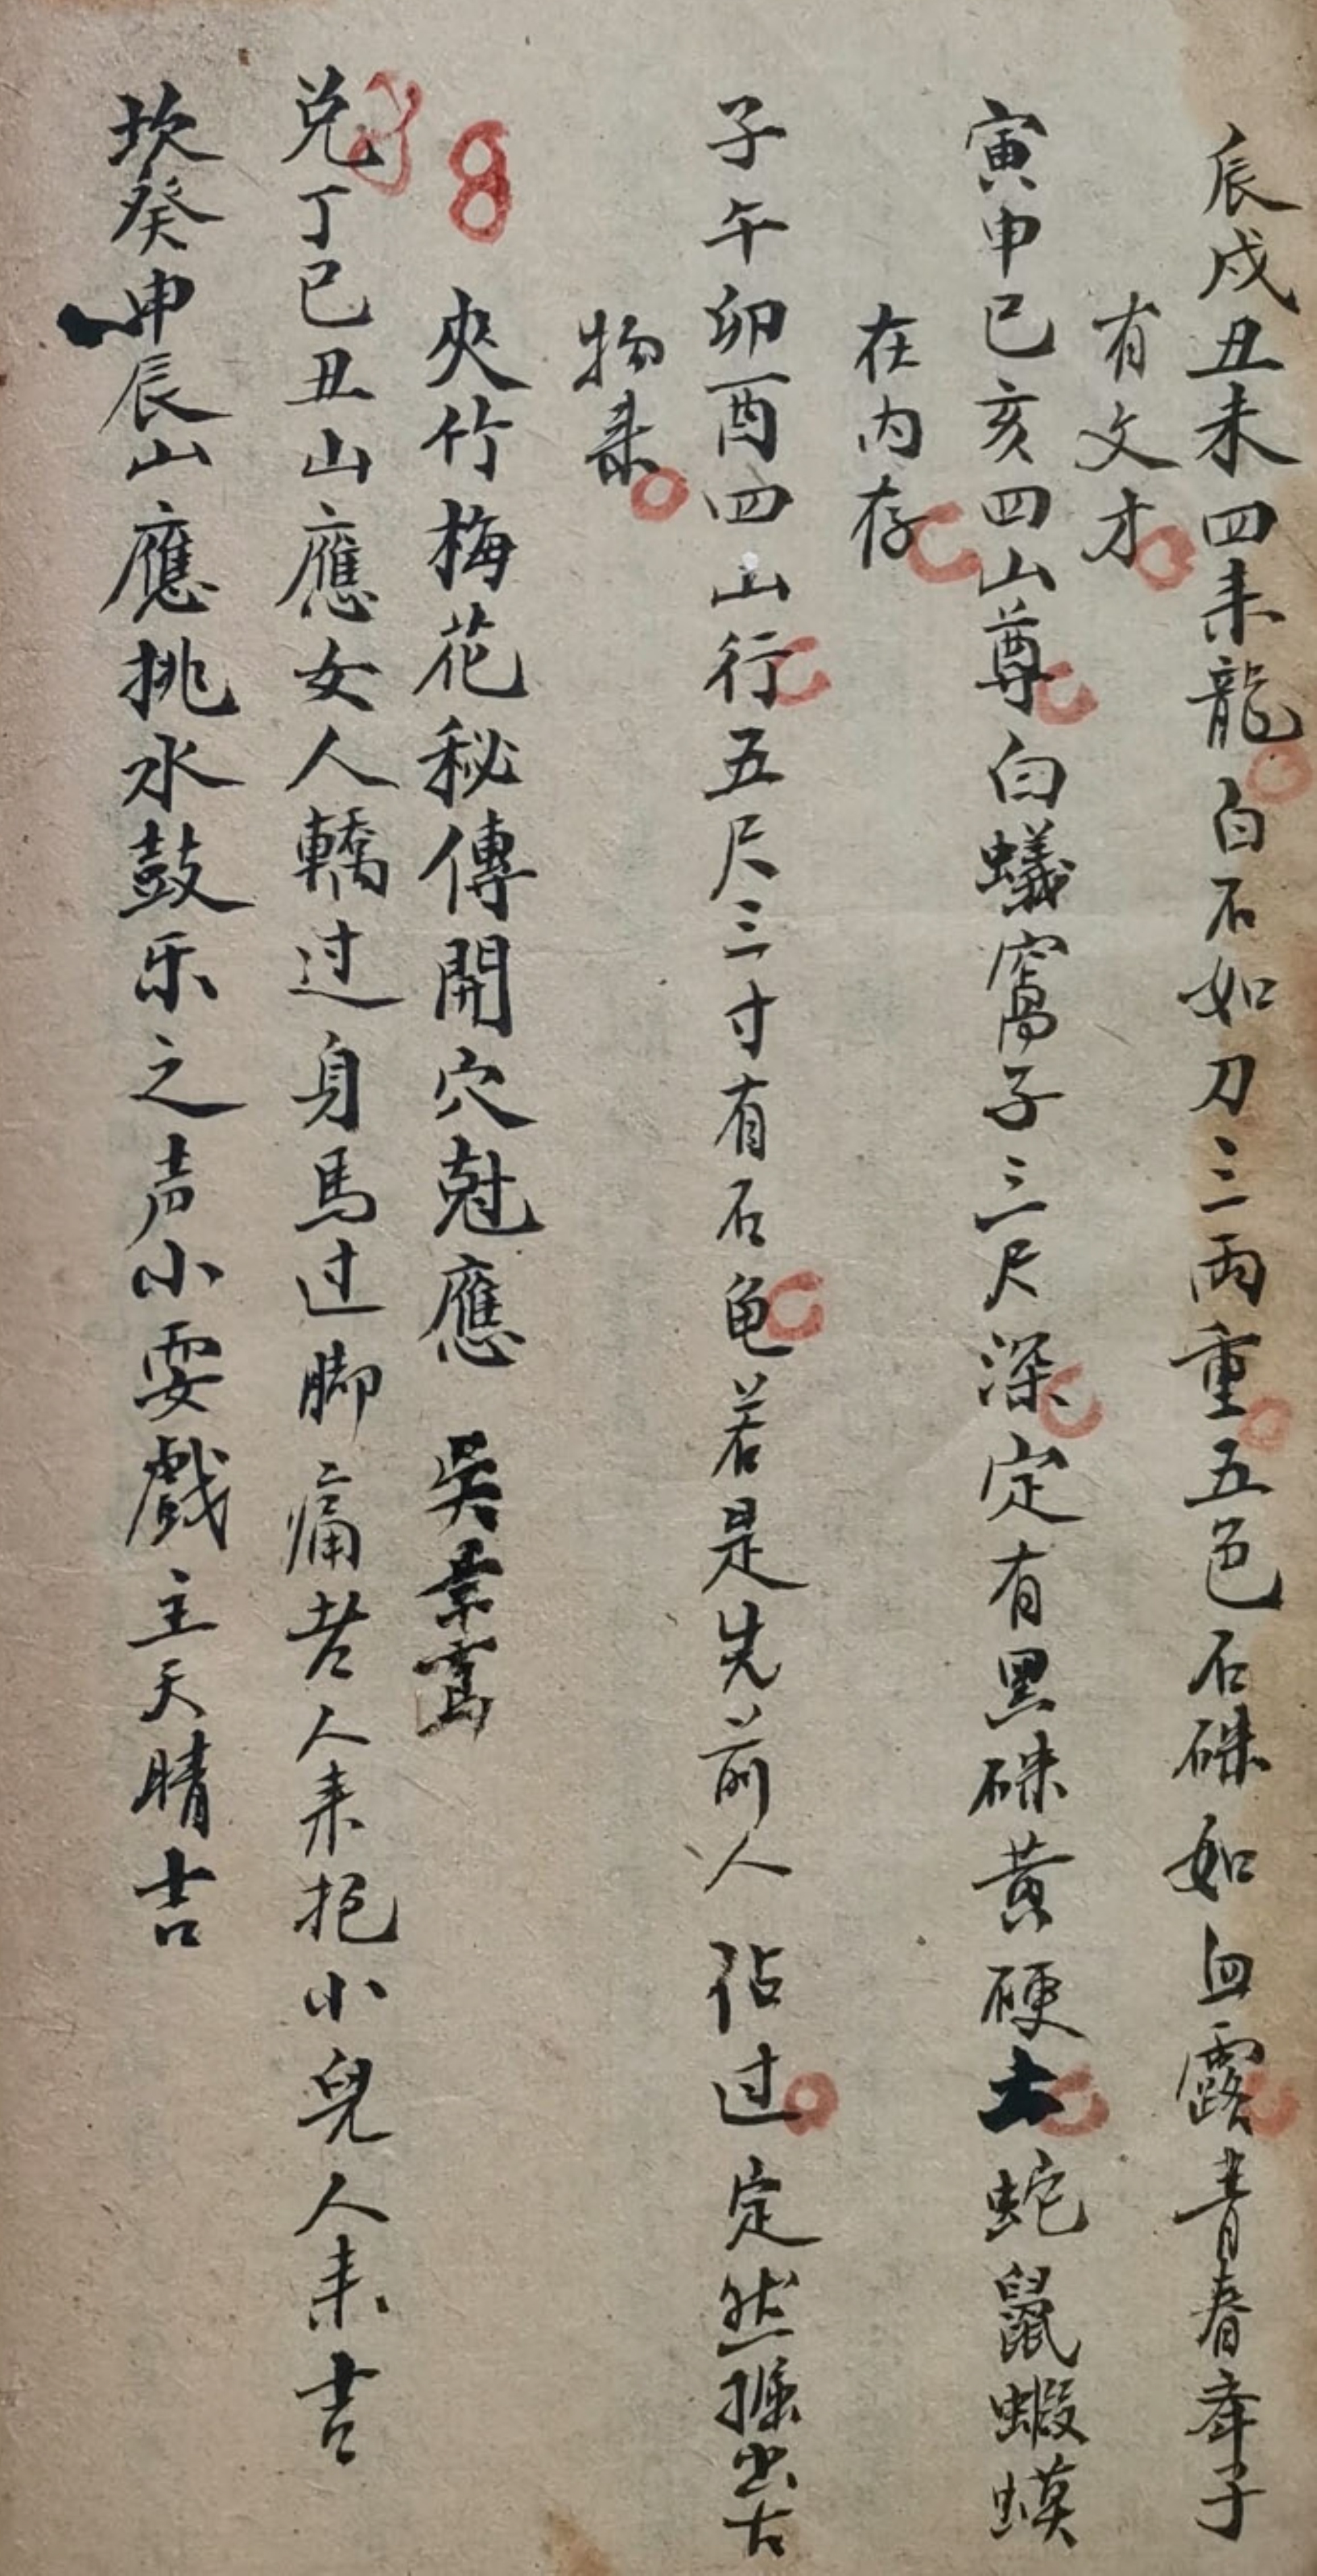 辰戌丑未四来龍白石如刀三兩重五色石硃如血露青春孝子
有文才
寅申巳亥四山尊白蟻窩子三尺深定有黑硃黃硬土蛇鼠蝦蟆
在内存
子午卯酉四山行五尺三寸有石龟若是先前人佔过定然掘出古
物来
夾竹梅花秘傳開穴尅應 吳景鸞
兑丁巳丑山應女人轎过身馬过脚痛者人来抱小兒人来吉
坎癸申辰山應挑水鼓乐之声小耍戲主天晴吉